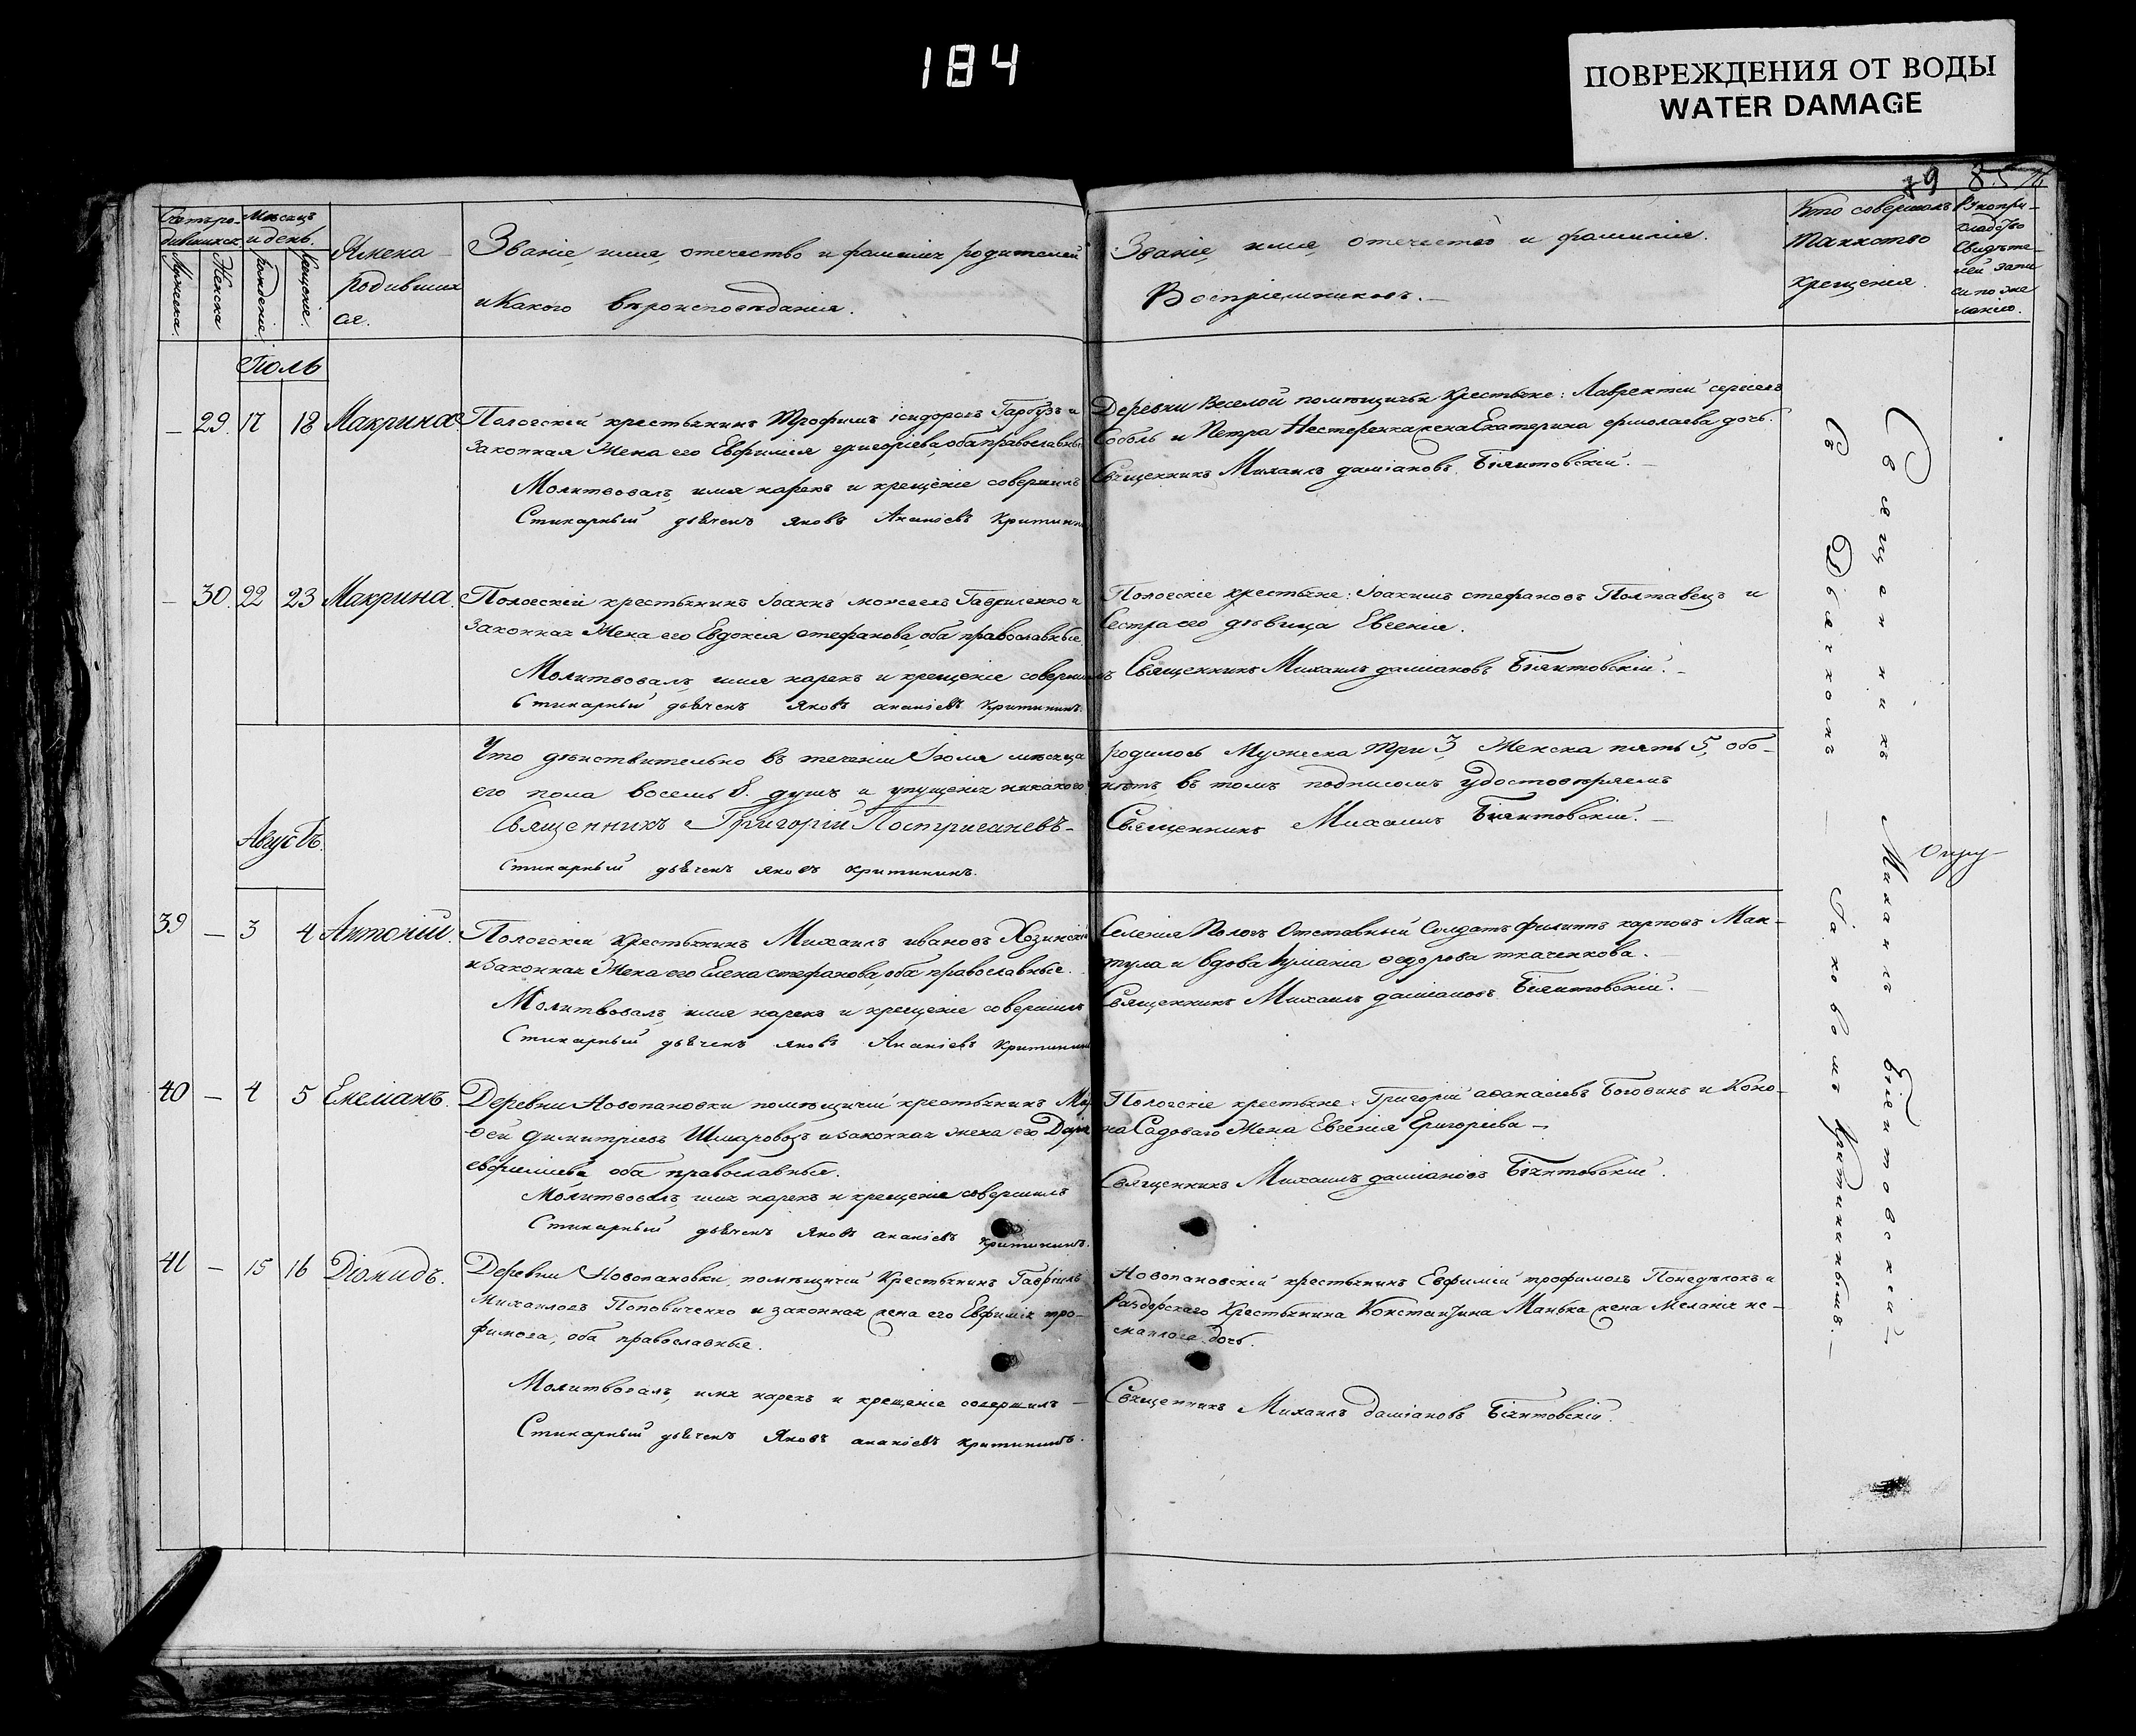 184
ПОВРЕЖДЕНИЯ ОТ ВОДЫ
WATER DAMAGE
Счетъ ро-
дившихся.
Мужеска.
Женска
Мѣсяцъ
и день.
Рожденіе.
Крещеніе.
Имена
родивших
ся.
Званіе, имя, отечество и фамилія родителей
и Какого вѣроисповѣданія.
Званіе, имя, отечество и фамилія.
Воспріемниковъ.
Кто совершалъ
таинство
крещенія.
Рукопри-
кладство
свидѣте-
лей запи
си по же
ланію.
Іюль
— 29. 17 18 Макрина
Пологскій крестьянинъ Трофимъ Ісидоровъ Гарбузъ и
законная Жена его Евфимія григоріева, оба православные
Молитвовалъ, имя нарекъ и крещеніе совершилъ
Стихарный дьячекъ Яковъ Ананіевъ Критининъ
Деревни Веселой помѣщичьи крестьяне: Лаврентій сергіевъ
Соболь и Петра Нестеренка жена Екатерина ермолаева дочь.
Священникъ Михаилъ даміановъ Біянтовскій. —
— 30. 22 23 Макрина.
Пологскій крестьянинъ Іоаннъ моисеевъ Гавриленко и
Законная Жена его Евдокія стефанова, оба православные
Молитвовалъ, имя нарекъ и крещеніе совершилъ
Стихарный дьячекъ Яковъ ананіевъ Критининъ.
Пологскіе крестьяне: Іоакимъ стефановъ Полтавецъ и
Сестра его дѣвица Евгенія.
Священникъ Михаилъ даміановъ Біянтовскій. —
Что дѣйствительно въ теченіи Іюля мѣсяца родилось Мужеска три 3, Женска пять 5, обо-
его пола восемь 8. душъ и упущенія никакого нѣтъ, въ томъ подписомъ удостовѣряемъ
Священникъ Григорій
Священникъ Михаилъ Біянтовскій. —
Стихарный дьячекъ Яковъ Критининъ.
Августъ.
39 — 3 4 Антоній.
Пологскій крестьянинъ Михаилъ ивановъ Хозинскій
и законная Жена его Елена стефанова, оба православные.
Молитвовалъ, имя нарекъ и крещеніе совершилъ
Стихарный дьячекъ Яковъ Ананіевъ Критининъ
Селенія Пологъ Отставный Солдатъ филиппъ карповъ Ман-
тула и вдова федорова ткаченкова.
Священникъ Михаилъ даміановъ Біянтовскій. —
40 — 4 5 Емеліанъ.
Деревни Новопановки помѣщичій крестьянинъ
димитріевъ и законная жена его
евфиміева, оба православные.
Молитвовалъ, имя нарекъ и крещеніе совершилъ
Стихарный дьячекъ Яковъ ананіевъ Критининъ.
Пологскіе крестьяне: Григорій аѳанасіевъ Боговинъ и Коно-
на Садоваго Жена Евгенія Григоріева —
Священникъ Михаилъ даміановъ Біянтовскій.
41 — 15 16 Діомидъ.
Деревни Новопановки, помѣщичій Крестьянинъ Гавріилъ
Михаиловъ Поповиченко и законная жена его Евфимія тро-
фимова, оба православные.
Молитвовалъ, имя нарекъ и крещеніе совершилъ —
Стихарный дьячекъ Яковъ ананіевъ Критининъ.
Новопановскій крестьянинъ Евфимій трофимовъ Понедѣлокъ и
Раздорскаго Крестьянина Константина Манька жена Меланія
дочь.
Священникъ Михаилъ даміановъ Біянтовскій.
Священникъ Михаилъ Біентовскій
Съ Дьячкомъ — Іаковомъ Критининымъ. —